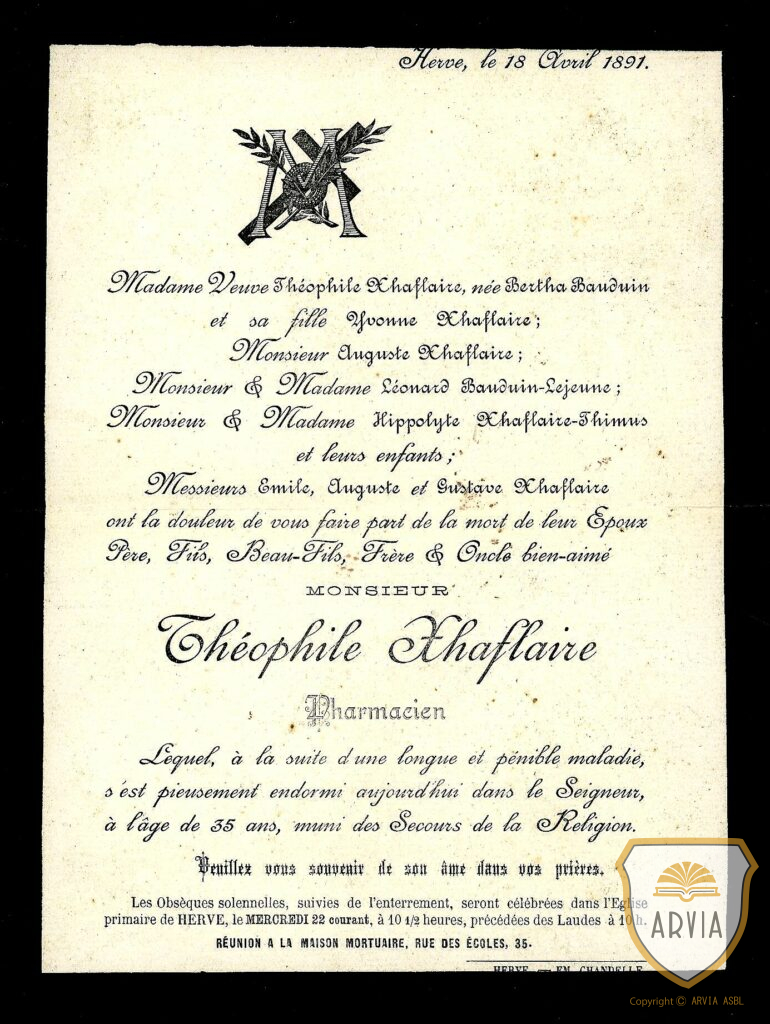 Herve, le 18 Avril 1891.
M
Madame Veuve Théophile Xhaflaire, née Bertha Bauduin
et sa fille Yvonne Xhaflaire;
Monsieur Auguste Xhaflaire;
Monsieur & Madame Léonard Bauduin-Lejeune;
Monsieur & Madame Hippolyte Xhaflaire-Thimus
et leurs enfants;
Messieurs Emile, Auguste et Gustave Xhaflaire
ont la douleur de vous faire part de la mort de leur Epoux
Père, Fils, Beau-Fils, Frère & Oncle bien-aimé
MONSIEUR
Théophile Xhaflaire
Pharmacien
Lequel, à la suite d'une longue et pénible maladie,
s'est pieusement endormi aujourd'hui dans le Seigneur,
à l'âge de 35 ans, muni des Secours de la Religion.
Veuillez vous souvenir de son âme dans vos prières.
Les Obsèques solennelles, suivies de l'enterrement, seront célébrées dans l'Eglise
primaire de HERVE, le MERCREDI 22 courant, à 10 1/2 heures, précédées des Laudes à 10 h.
RÉUNION A LA MAISON MORTUAIRE, RUE DES ÉCOLES, 35.
HERVE — EM. CHANDELLE
ARVIA
Copyright © ARVIA ASBL